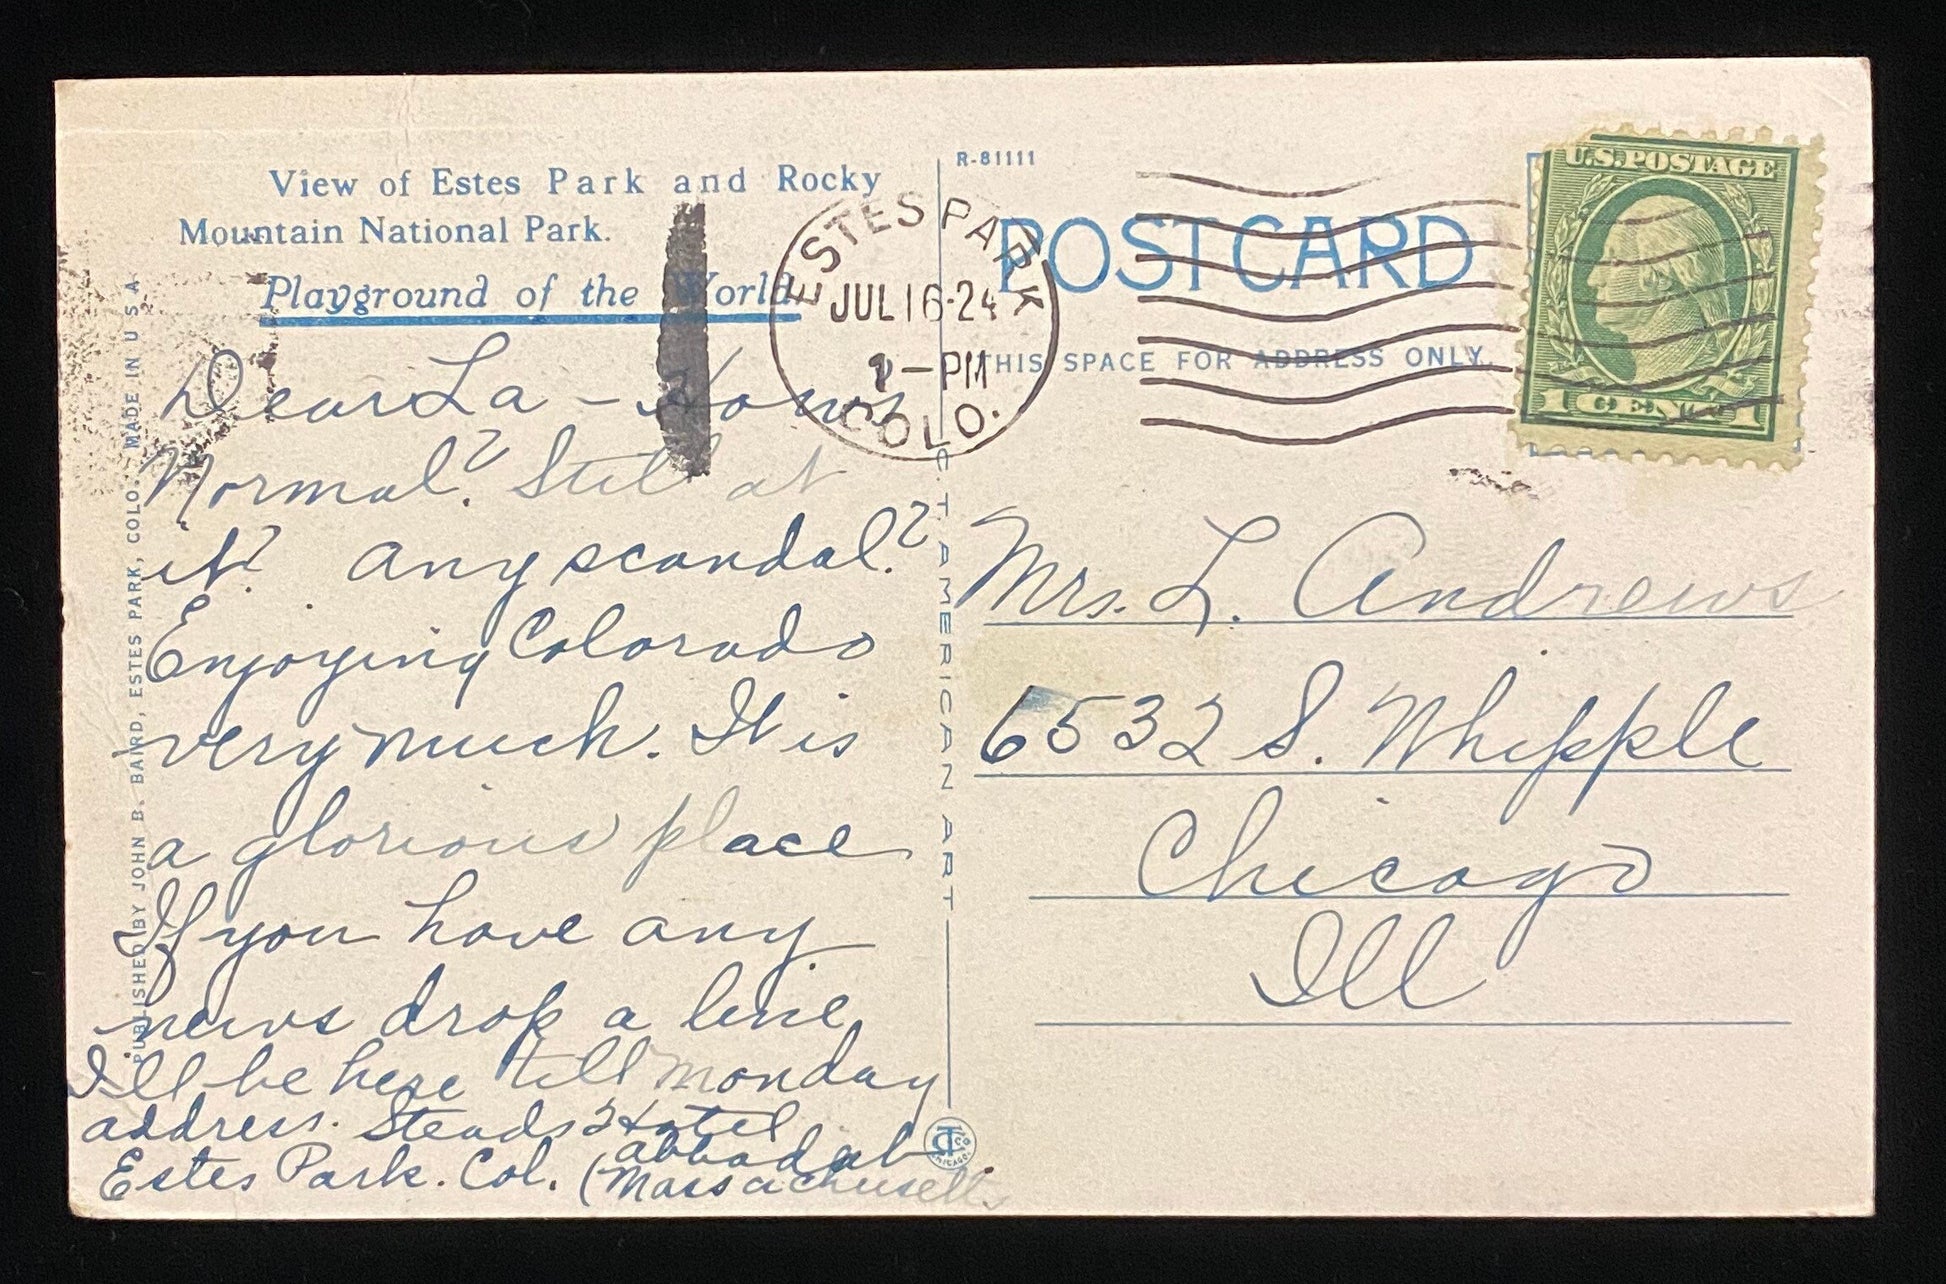 View of Estes Park and Rocky
Mountain National Park.
Playground of the World
Dear La - Hows
Normal? Still at
it? Any scandal?
Enjoying Colorado
very much. It is
a glorious place
If you have any
news drop a line
I'll be here till Monday
address. Steads Hotel
Estes Park. Col. (Massachusetts
PUBLISHED BY JOHN B. BAIRD, ESTES PARK, COLO. MADE IN U S A
C. T. AMERICAN ART
R-81111
POST CARD
THIS SPACE FOR ADDRESS ONLY.
ESTES PARK
JUL 16·24
-PM
COLO.
U.S. POSTAGE
1 CENT 1
Mrs. L. Andrews
6532 S. Whipple
Chicago
Ill